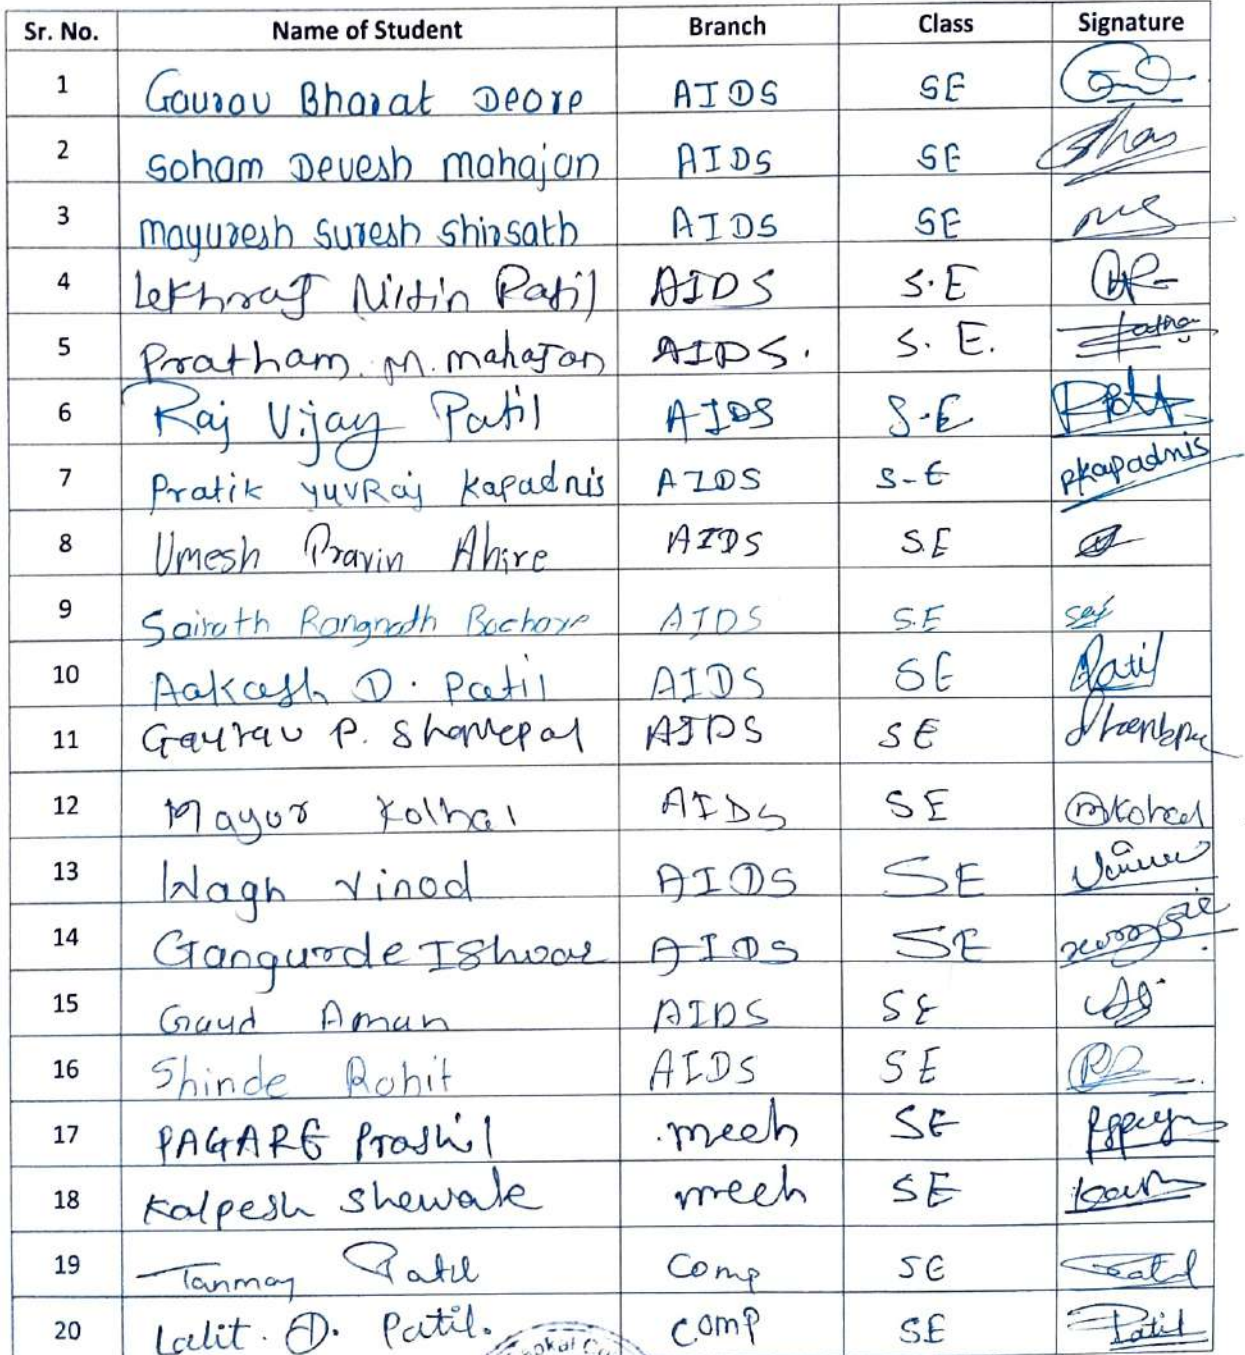 Sr. No. Name of Student Branch Class Signature
1 Gaurav Bharat Deore AIDS SE
2 Soham Devesh mahajan AIDS SE
3 mayuresh suresh shirsath AIDS SE
4 Lekhraj Nitin Patil AIDS S.E
5 Pratham. M. mahajan AIDS. S. E.
6 Raj Vijay Patil AIDS S-E
7 Pratik YUVRaj Kapadnis AIDS S-E pkapadnis
8 Umesh Pravin Ahire AIDS S.E
9 Sairath Rangnath AIDS S.E
10 Aakash D. Patil AIDS SE Patil
11 Gaurav P. AIDS SE
12 Mayur Kolhal AIDS SE
13 Wagh Vinod AIDS SE
14 Gangurde IShwar AIDS SE
15 Gaud Aman AIDS SE
16 Shinde Rohit AIDS SE
17 PAGARE Prashil mech SE
18 Kalpesh Shewale mech SE
19 Tanmay Patil Comp SE
20 Lalit. D. Patil. comp SE Patil